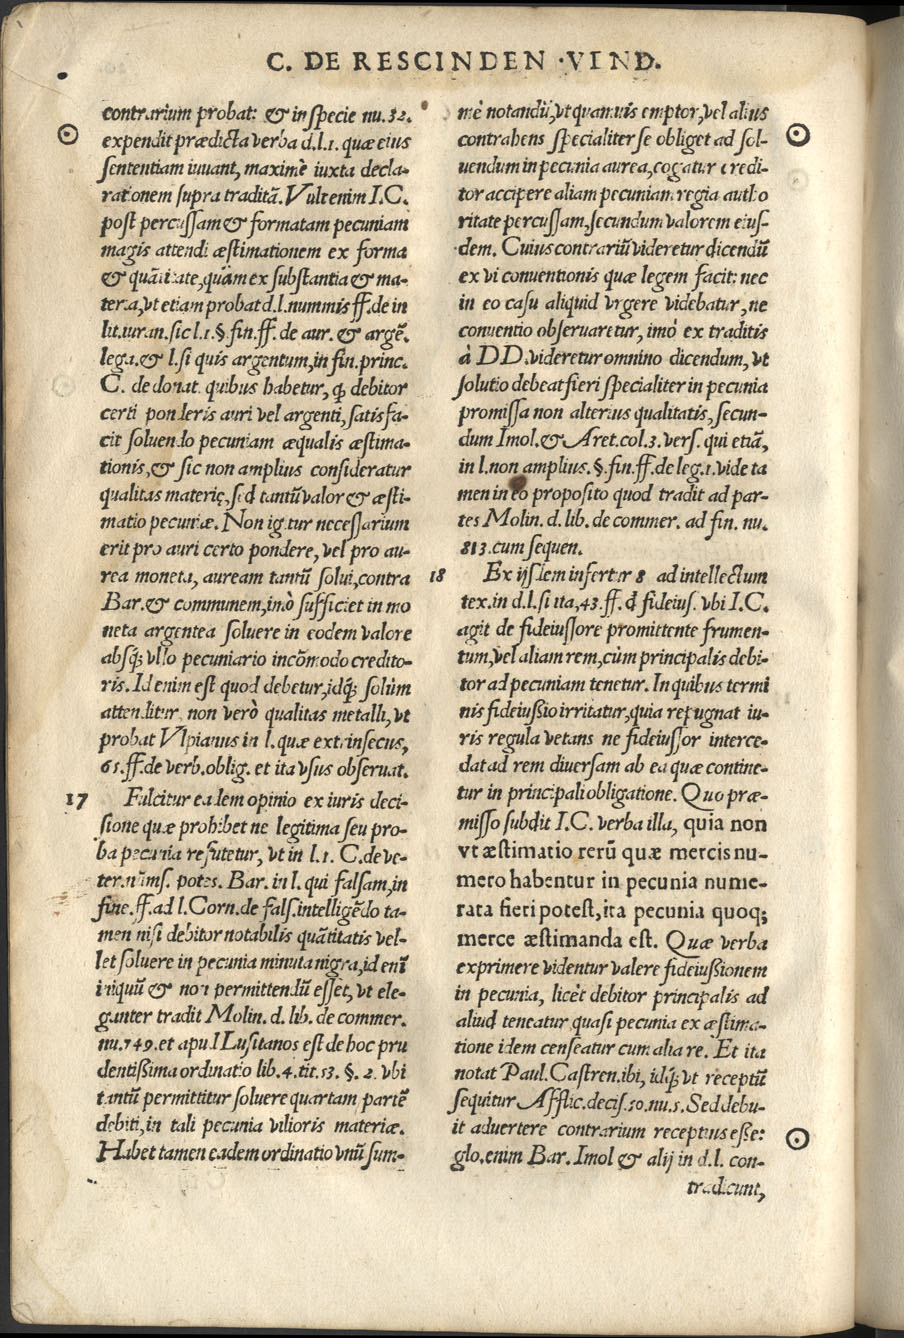 C. DE RESCINDEN ·VIND.
contrarium probat: & in specie nu. 32.
expendit prædicta verba d.l.1. quæ eius
sententiam iuuant, maximè iuxta decla-
rationem supra traditã. Vult enim I.C.
post percussam & formatam pecuniam
magis attendi æstimationem ex forma
& quãtitate, quàm ex substantia & ma-
teria, vt etiam probat d.l. nummis ff. de in
lit. iuran. sic l.1. §. fin. ff. de aur. & argẽ.
lega. & l. si quis argentum, in fin. princ.
C. de donat. quibus habetur, ꝙ debitor
certi ponderis auri vel argenti, satisfa-
cit soluendo pecuniam æqualis æstima-
tionis, & sic non amplius consideratur
qualitas materię, sed tantũ valor & æsti-
matio pecuniæ. Non igitur necessarium
erit pro auri certo pondere, vel pro au-
rea moneta, auream tantũ solui, contra
Bar. & communem, imò sufficiet in mo
neta argentea soluere in eodem valore
absq; vllo pecuniario incõmodo credito-
ris. Id enim est quod debetur, idq; solùm
attenditur, non verò qualitas metalli, vt
probat Vlpianus in l. quæ extrinsecus,
65. ff. de verb. oblig. et ita vsus obseruat.
17 Fulcitur eadem opinio ex iuris deci-
sione quæ prohibet ne legitima seu pro-
ba pecunia refutetur, vt in l. 1. C. de ve-
ter. nũms. potes. Bar. in l. qui falsam, in
fine. ff. ad l. Corn. de fals. intelligẽdo ta-
men nisi debitor notabilis quãtitatis vel-
let soluere in pecunia minuta nigra, id enĩ
iniquũ & non permittendũ esset, vt ele-
ganter tradit Molin. d. lib. de commer.
nu. 749. et apud Lusitanos est de hoc pru
dentißima ordinatio lib. 4. tit. 53. §. 2. vbi
tantũ permittitur soluere quartam partẽ
debiti, in tali pecunia vilioris materiæ.
Habet tamen eadem ordinatio vnũ sum-
mè notandũ, vt quamuis emptor, vel alius
contrahens specialiter se obliget ad sol-
uendum in pecunia aurea, cogatur credi-
tor accipere aliam pecuniam regia autho
ritate percussam, secundum valorem eius-
dem. Cuius contrariũ videretur dicendũ
ex vi conuentionis quæ legem facit: nec
in eo casu aliquid vrgere videbatur, ne
conuentio obseruaretur, imò ex traditis
à DD. videretur omnino dicendum, vt
solutio debeat fieri specialiter in pecunia
promissa non alterius qualitatis, secun-
dum Imol. & Aret. col. 3. vers. qui etiã,
in l. non amplius. §. fin. ff. de leg. 1. vide ta
men in eo proposito quod tradit ad par-
tes Molin. d. lib. de commer. ad fin. nu.
813. cum sequen.
18 Ex ijsdem infertur 8 ad intellectum
tex. in d. l. si ita, 43. ff. ð fideius. vbi I.C.
agit de fideiussore promittente frumen-
tum, vel aliam rem, cùm principalis debi-
tor ad pecuniam tenetur. In quibus termi
nis fideiußio irritatur, quia repugnat iu-
ris regula vetans ne fideiussor interce-
dat ad rem diuersam ab ea quæ contine-
tur in principali obligatione. Quo præ-
misso subdit I.C. verba illa, quia non
vt æstimatio rerũ quæ mercis nu-
mero habentur in pecunia nume-
rata fieri potest, ita pecunia quoq;
merce æstimanda est. Quæ verba
exprimere videntur valere fideiußionem
in pecunia, licèt debitor principalis ad
aliud teneatur quasi pecunia ex æstima-
tione idem censeatur cum alia re. Et ita
notat Paul. Castren. ibi, idq; vt receptũ
sequitur Afflic. decis. 50. nu. 5. Sed debu-
it aduertere contrarium receptius eße:
glo. enim Bar. Imol & alij in d. l. con-
tradicunt,